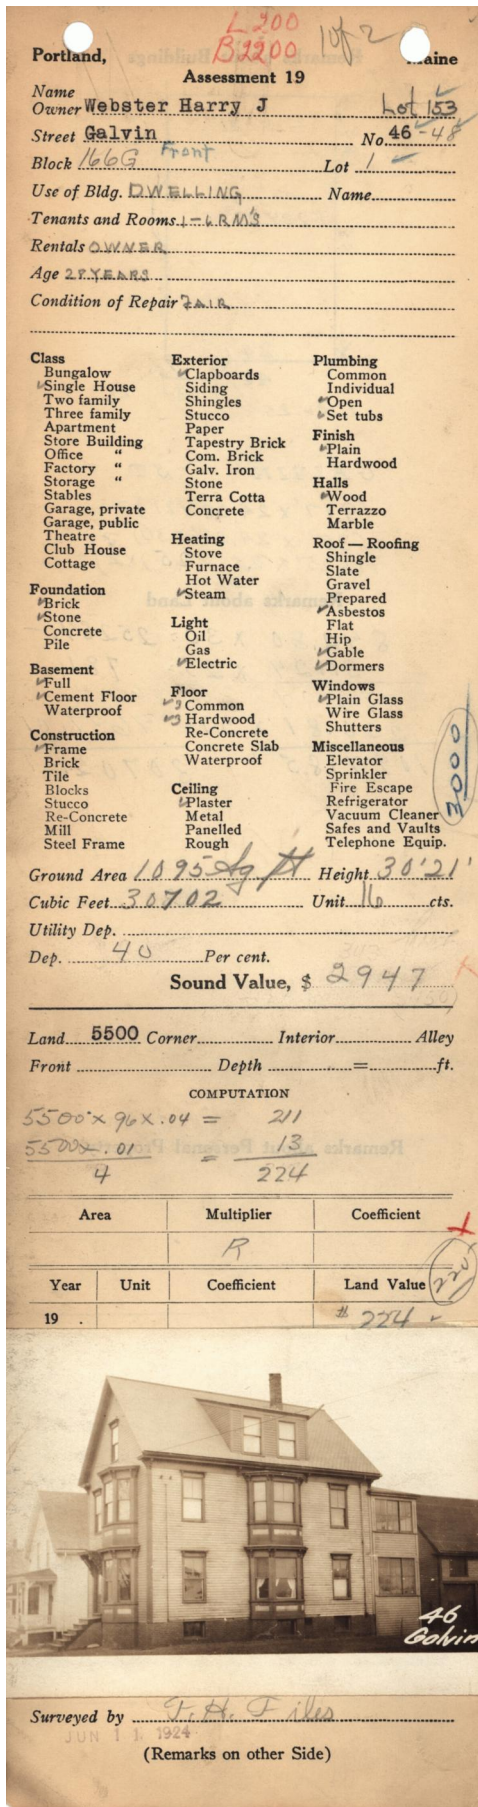 L 200
B 2200
1 of 2
Portland, Maine
Assessment 19
Name
Owner Webster Harry J Lot 153
Street Galvin No. 46-48
Block 166G Front Lot 1
Use of Bldg. DWELLING Name
Tenants and Rooms 1-6 RM'S
Rentals OWNER
Age 28 YEARS
Condition of Repair FAIR
Class
Bungalow
Single House
Two family
Three family
Apartment
Store Building
Office "
Factory "
Storage "
Stables
Garage, private
Garage, public
Theatre
Club House
Cottage
Foundation
Brick
Stone
Concrete
Pile
Basement
Full
Cement Floor
Waterproof
Construction
Frame
Brick
Tile
Blocks
Stucco
Re-Concrete
Mill
Steel Frame
Exterior
Clapboards
Siding
Shingles
Stucco
Paper
Tapestry Brick
Com. Brick
Galv. Iron
Stone
Terra Cotta
Concrete
Heating
Stove
Furnace
Hot Water
Steam
Light
Oil
Gas
Electric
Floor
3 Common
3 Hardwood
Re-Concrete
Concrete Slab
Waterproof
Ceiling
Plaster
Metal
Panelled
Rough
Plumbing
Common
Individual
Open
Set tubs
Finish
Plain
Hardwood
Halls
Wood
Terrazzo
Marble
Roof — Roofing
Shingle
Slate
Gravel
Prepared
Asbestos
Flat
Hip
Gable
Dormers
Windows
Plain Glass
Wire Glass
Shutters
Miscellaneous
Elevator
Sprinkler
Fire Escape
Refrigerator
Vacuum Cleaner
Safes and Vaults
Telephone Equip.
3000
Ground Area 1095 Sq ft Height 30'21'
Cubic Feet 30702 Unit 16 cts.
Utility Dep.
Dep. 40 Per cent.
Sound Value, $ 2947
Land 5500 Corner Interior Alley
Front Depth = ft.
COMPUTATION
5500 x 96 x .04 = 211
5500 x .01 = 13
4 224
Area Multiplier Coefficient
R
Year Unit Coefficient Land Value
220
19 . $ 224
46
Galvin
Surveyed by F. H. Files
JUN 11 1924
(Remarks on other Side)